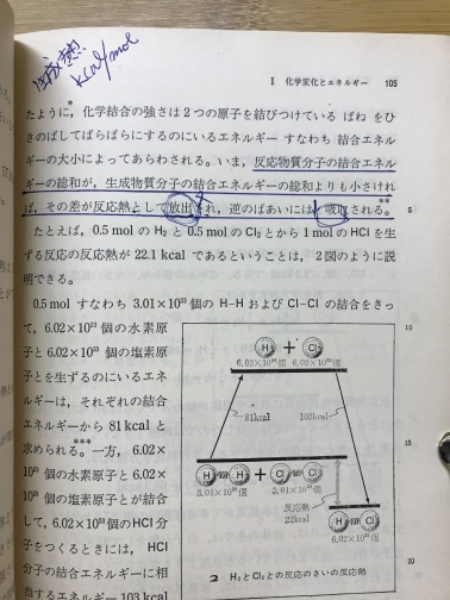 生成熱
kcal/mol
I 化学変化とエネルギー 105
たように*, 化学結合の強さは2つの原子を結びつけている ばね をひ
きのばしてばらばらにするのにいるエネルギー すなわち 結合エネル
ギーの大小によってあらわされる。いま, 反応物質分子の結合エネル
ギーの総和が, 生成物質分子の結合エネルギーの総和よりも小さけれ
ば, その差が反応熱として放出され, 逆のばあいには 吸収される。**
5
たとえば, 0.5 mol の H₂ と 0.5 mol の Cl₂ とから 1 mol の HCl を生
ずる反応の反応熱が 22.1 kcal であるということは, 2図のように説
明できる。
0.5 mol すなわち 3.01×10²³ 個の H-H および Cl-Cl の結合をきっ
て, 6.02×10²³ 個の水素原
10
子と 6.02×10²³ 個の塩素原
子とを生ずるのにいるエネ
ルギーは, それぞれの結合
エネルギーから 81 kcal と
求められる。*** 一方, 6.02×
15
10²³ 個の水素原子と 6.02×
10²³ 個の塩素原子とが結合
して, 6.02×10²³ 個の HCl 分
子をつくるときには, HCl
分子の結合エネルギーに相
20
当するエネルギー 103 kcal
H + Cl
6.02×10²³個 6.02×10²³個
81kcal 103kcal
H H + Cl Cl
3.01×10²³個 3.01×10²³個
反応熱
22kcal
H Cl
6.02×10²³個
2 H₂とCl₂との反応のさいの反応熱